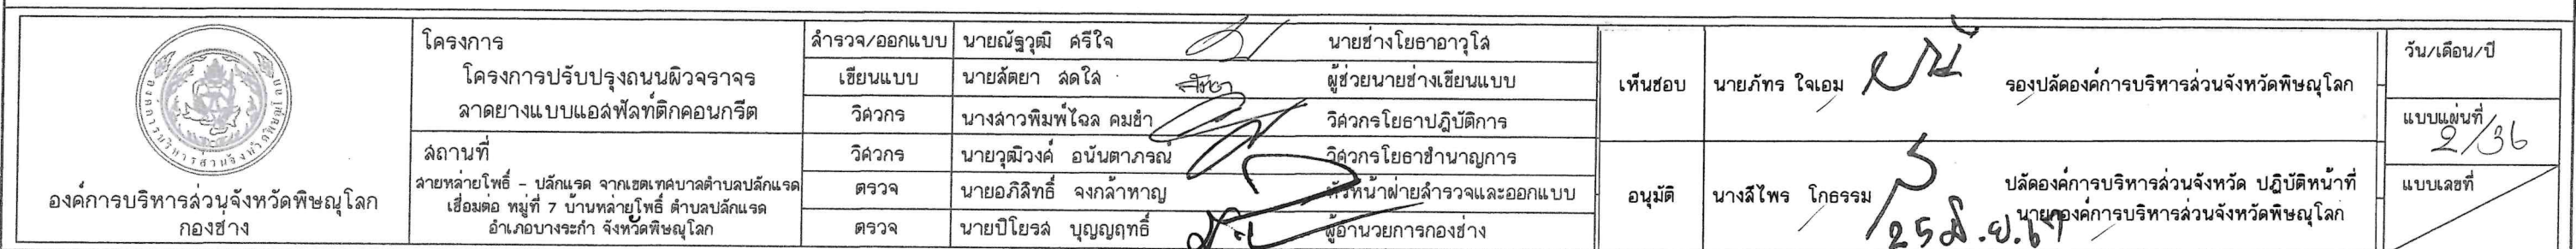 องค์การบริหารส่วนจังหวัดพิษณุโลก
องค์การบริหารส่วนจังหวัดพิษณุโลก
กองช่าง
โครงการ
โครงการปรับปรุงถนนผิวจราจร
ลาดยางแบบแอสฟัลท์ติกคอนกรีต
สถานที่
สายหล่ายโพธิ์ - ปลักแรด จากเขตเทศบาลตำบลปลักแรด
เชื่อมต่อ หมู่ที่ 7 บ้านหล่ายโพธิ์ ตำบลปลักแรด
อำเภอบางระกำ จังหวัดพิษณุโลก
สำรวจ/ออกแบบ นายณัฐวุฒิ ศรีใจ นายช่างโยธาอาวุโส
เขียนแบบ นายสัตยา สดใส ผู้ช่วยนายช่างเขียนแบบ
วิศวกร นางสาวพิมพ์ไฉล คมขำ วิศวกรโยธาปฏิบัติการ
วิศวกร นายวุฒิวงค์ อนันตาภรณ์ วิศวกรโยธาชำนาญการ
ตรวจ นายอภิสิทธิ์ จงกล้าหาญ หัวหน้าฝ่ายสำรวจและออกแบบ
ตรวจ นายปิโยรส บุญญฤทธิ์ ผู้อำนวยการกองช่าง
เห็นชอบ นายภัทร ใจเอม รองปลัดองค์การบริหารส่วนจังหวัดพิษณุโลก
อนุมัติ นางสีไพร โกธรรม ปลัดองค์การบริหารส่วนจังหวัด ปฏิบัติหน้าที่
นายกองค์การบริหารส่วนจังหวัดพิษณุโลก
25 มิ.ย. 67
วัน/เดือน/ปี
แบบแผ่นที่
2/36
แบบเลขที่